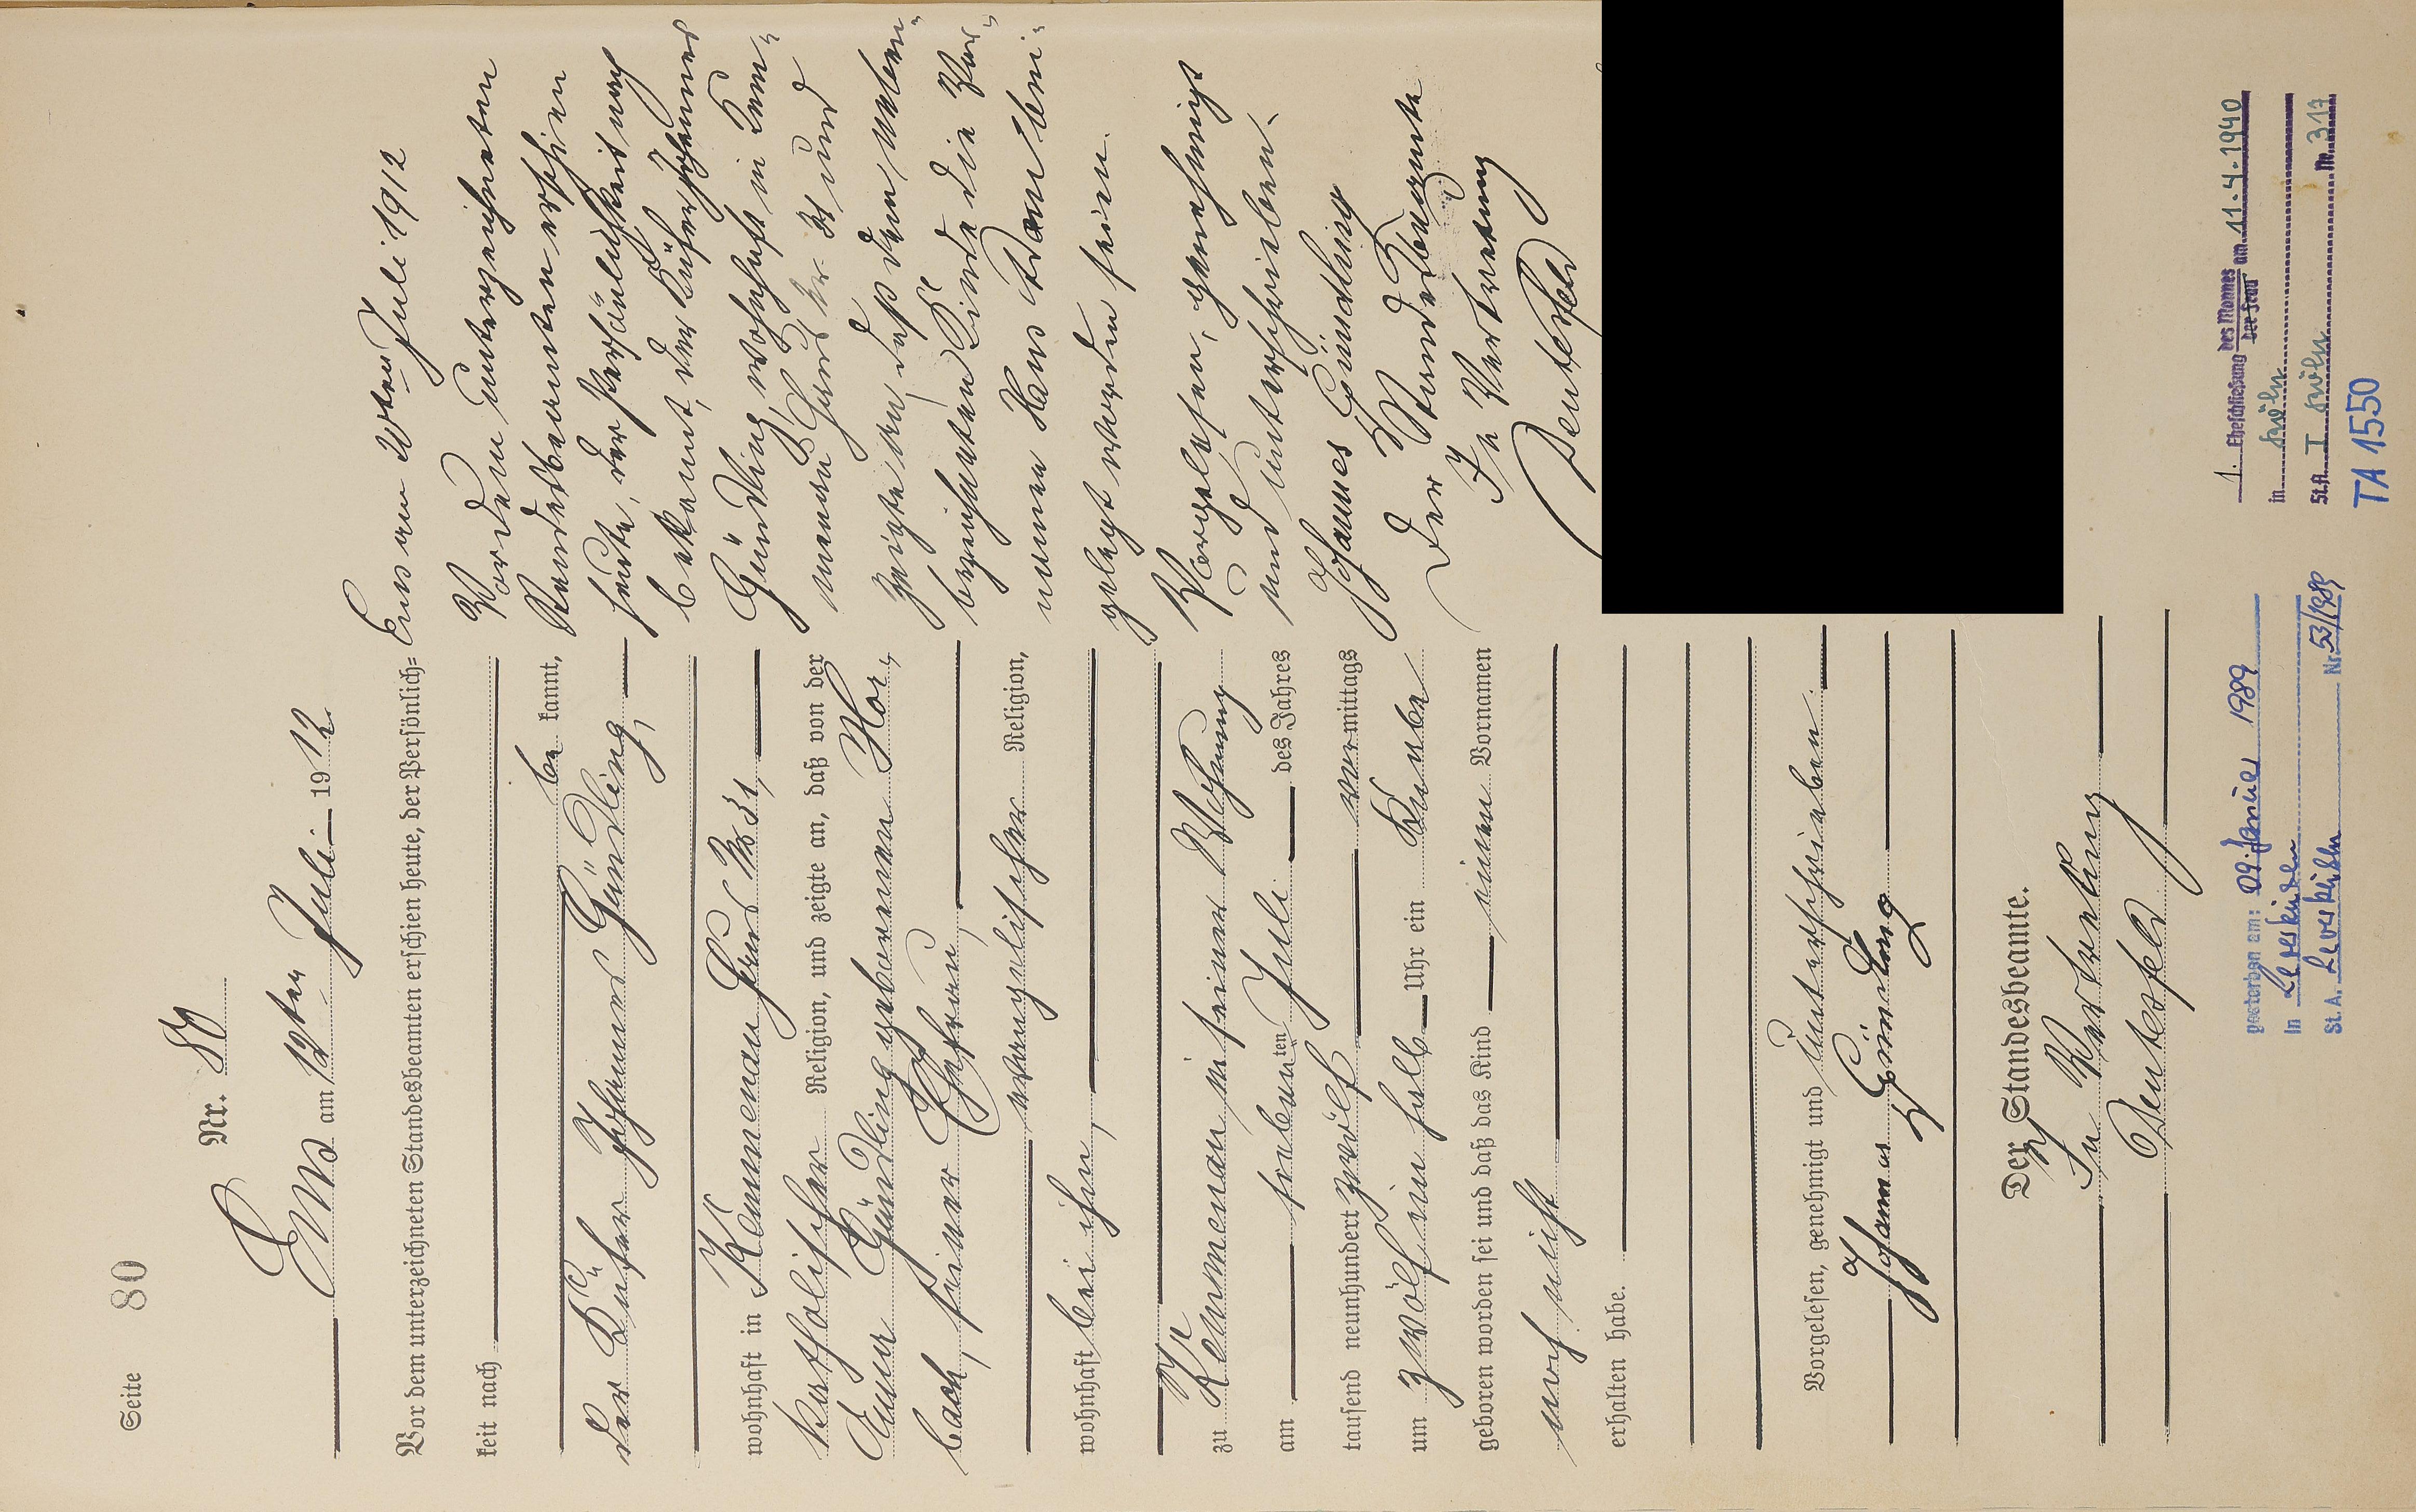 Seite 80
Nr. 80
Ems am 12ten Juli 1912
Vor dem unterzeichneten Standesbeamten erschien heute, der Persönlich=
keit nach
be kannt,
der Küfer Johannes Gündling,
wohnhaft in Kemmenau Haus No 31,
katholischer Religion, und zeigte an, daß von der
Anna Gündling geborenen Hor-
bach, seiner Ehefrau,
evangelischer Religion,
wohnhaft bei ihm,
zu Kemmenau in seiner Wohnung
am siebenten Juli des Jahres
tausend neunhundert zwölf vormittags
um zwölf ein halb Uhr ein Knabe
geboren worden sei und daß das Kind einen Vornamen
noch nicht
erhalten habe.
Vorgelesen, genehmigt und Unterschrieben.
Johannes Gündling
Der Standesbeamte.
In Vertretung
Deutesfeld
Ems am Juli 1912
Vor dem unterzeichneten
Standesbeamten erschien
heute, der Persönlichkeit nach
bekannt, der Küfer Johannes
Gündling, wohnhaft in Kem-
menau Haus No 31 und
zeigte an, daß dem neben-
bezeichneten Kinde die Vor-
namen Hans
gelegt worden seien.
Vorgelesen, genehmigt
und Unterschrieben.
Johannes Gündling
Der Standesbeamte
In Vertretung
Deutesfeld
gestorben am: 09. Januar 1989
In Leverkusen
St.A. Leverkusen Nr. 53/1989
1. Eheschließung des Mannes am 11.4.1940
der Frau
in Köln
St.A. I Köln Nr. 317
TA 1550